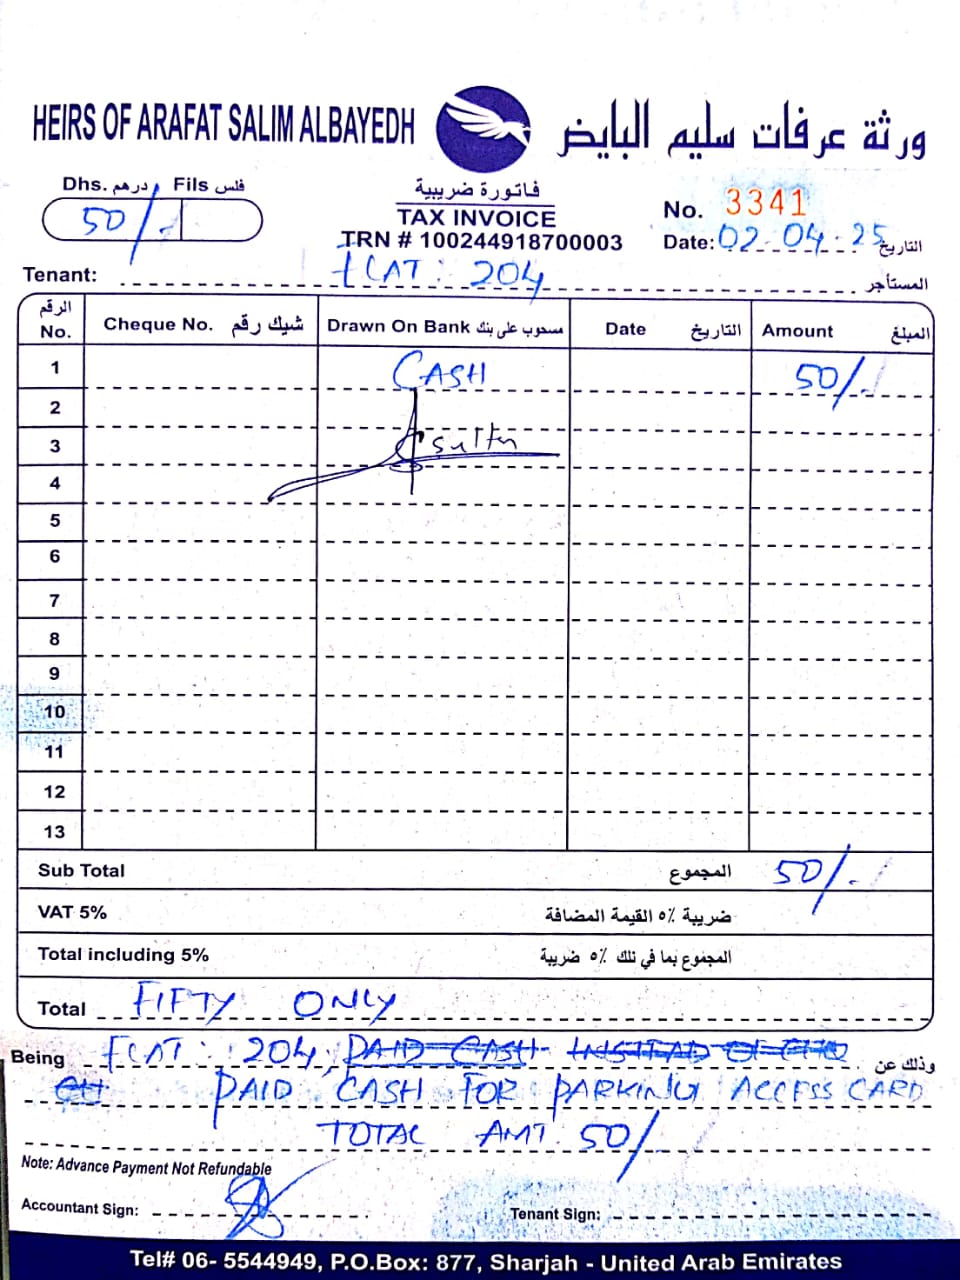 HEIRS OF ARAFAT SALIM ALBAYEDH ورثة عرفات سليم البايض
Dhs. درهم Fils فلس
50/-
فاتورة ضريبية
TAX INVOICE
TRN # 100244918700003
No. 3341
Date: 02-04-25 التاريخ
Tenant: FLAT: 204 المستأجر
الرقم No. Cheque No. شيك رقم Drawn On Bank مسحوب على بنك Date التاريخ Amount المبلغ
1 CASH 50/-
2
3
4
5
6
7
8
9
10
11
12
13
Sub Total المجموع 50/-
VAT 5% ضريبة ٥٪ القيمة المضافة
Total including 5% المجموع بما في ذلك ٥٪ ضريبة
Total FIFTY ONLY
Being FLAT: 204, PAID CASH INSTEAD OF CHQ وذلك عن
PAID CASH FOR PARKING ACCESS CARD
TOTAL AMT 50/
Note: Advance Payment Not Refundable
Accountant Sign:
Tenant Sign:
Tel# 06- 5544949, P.O.Box: 877, Sharjah - United Arab Emirates